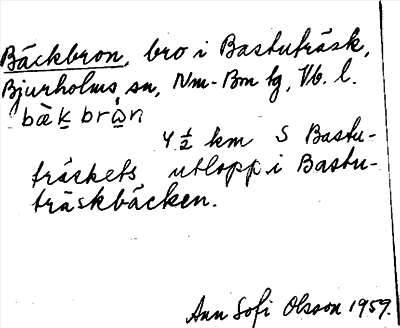 Bäckbron, bro i Bastuträsk,
Bjurholms sn, Nm-Bm tg, Vb. l.
bæ̀k brɷ̀n
4 ½ km S Bastu-
träskets utlopp i Bastu-
träskbäcken.
Ann Sofi Olsson 1959.